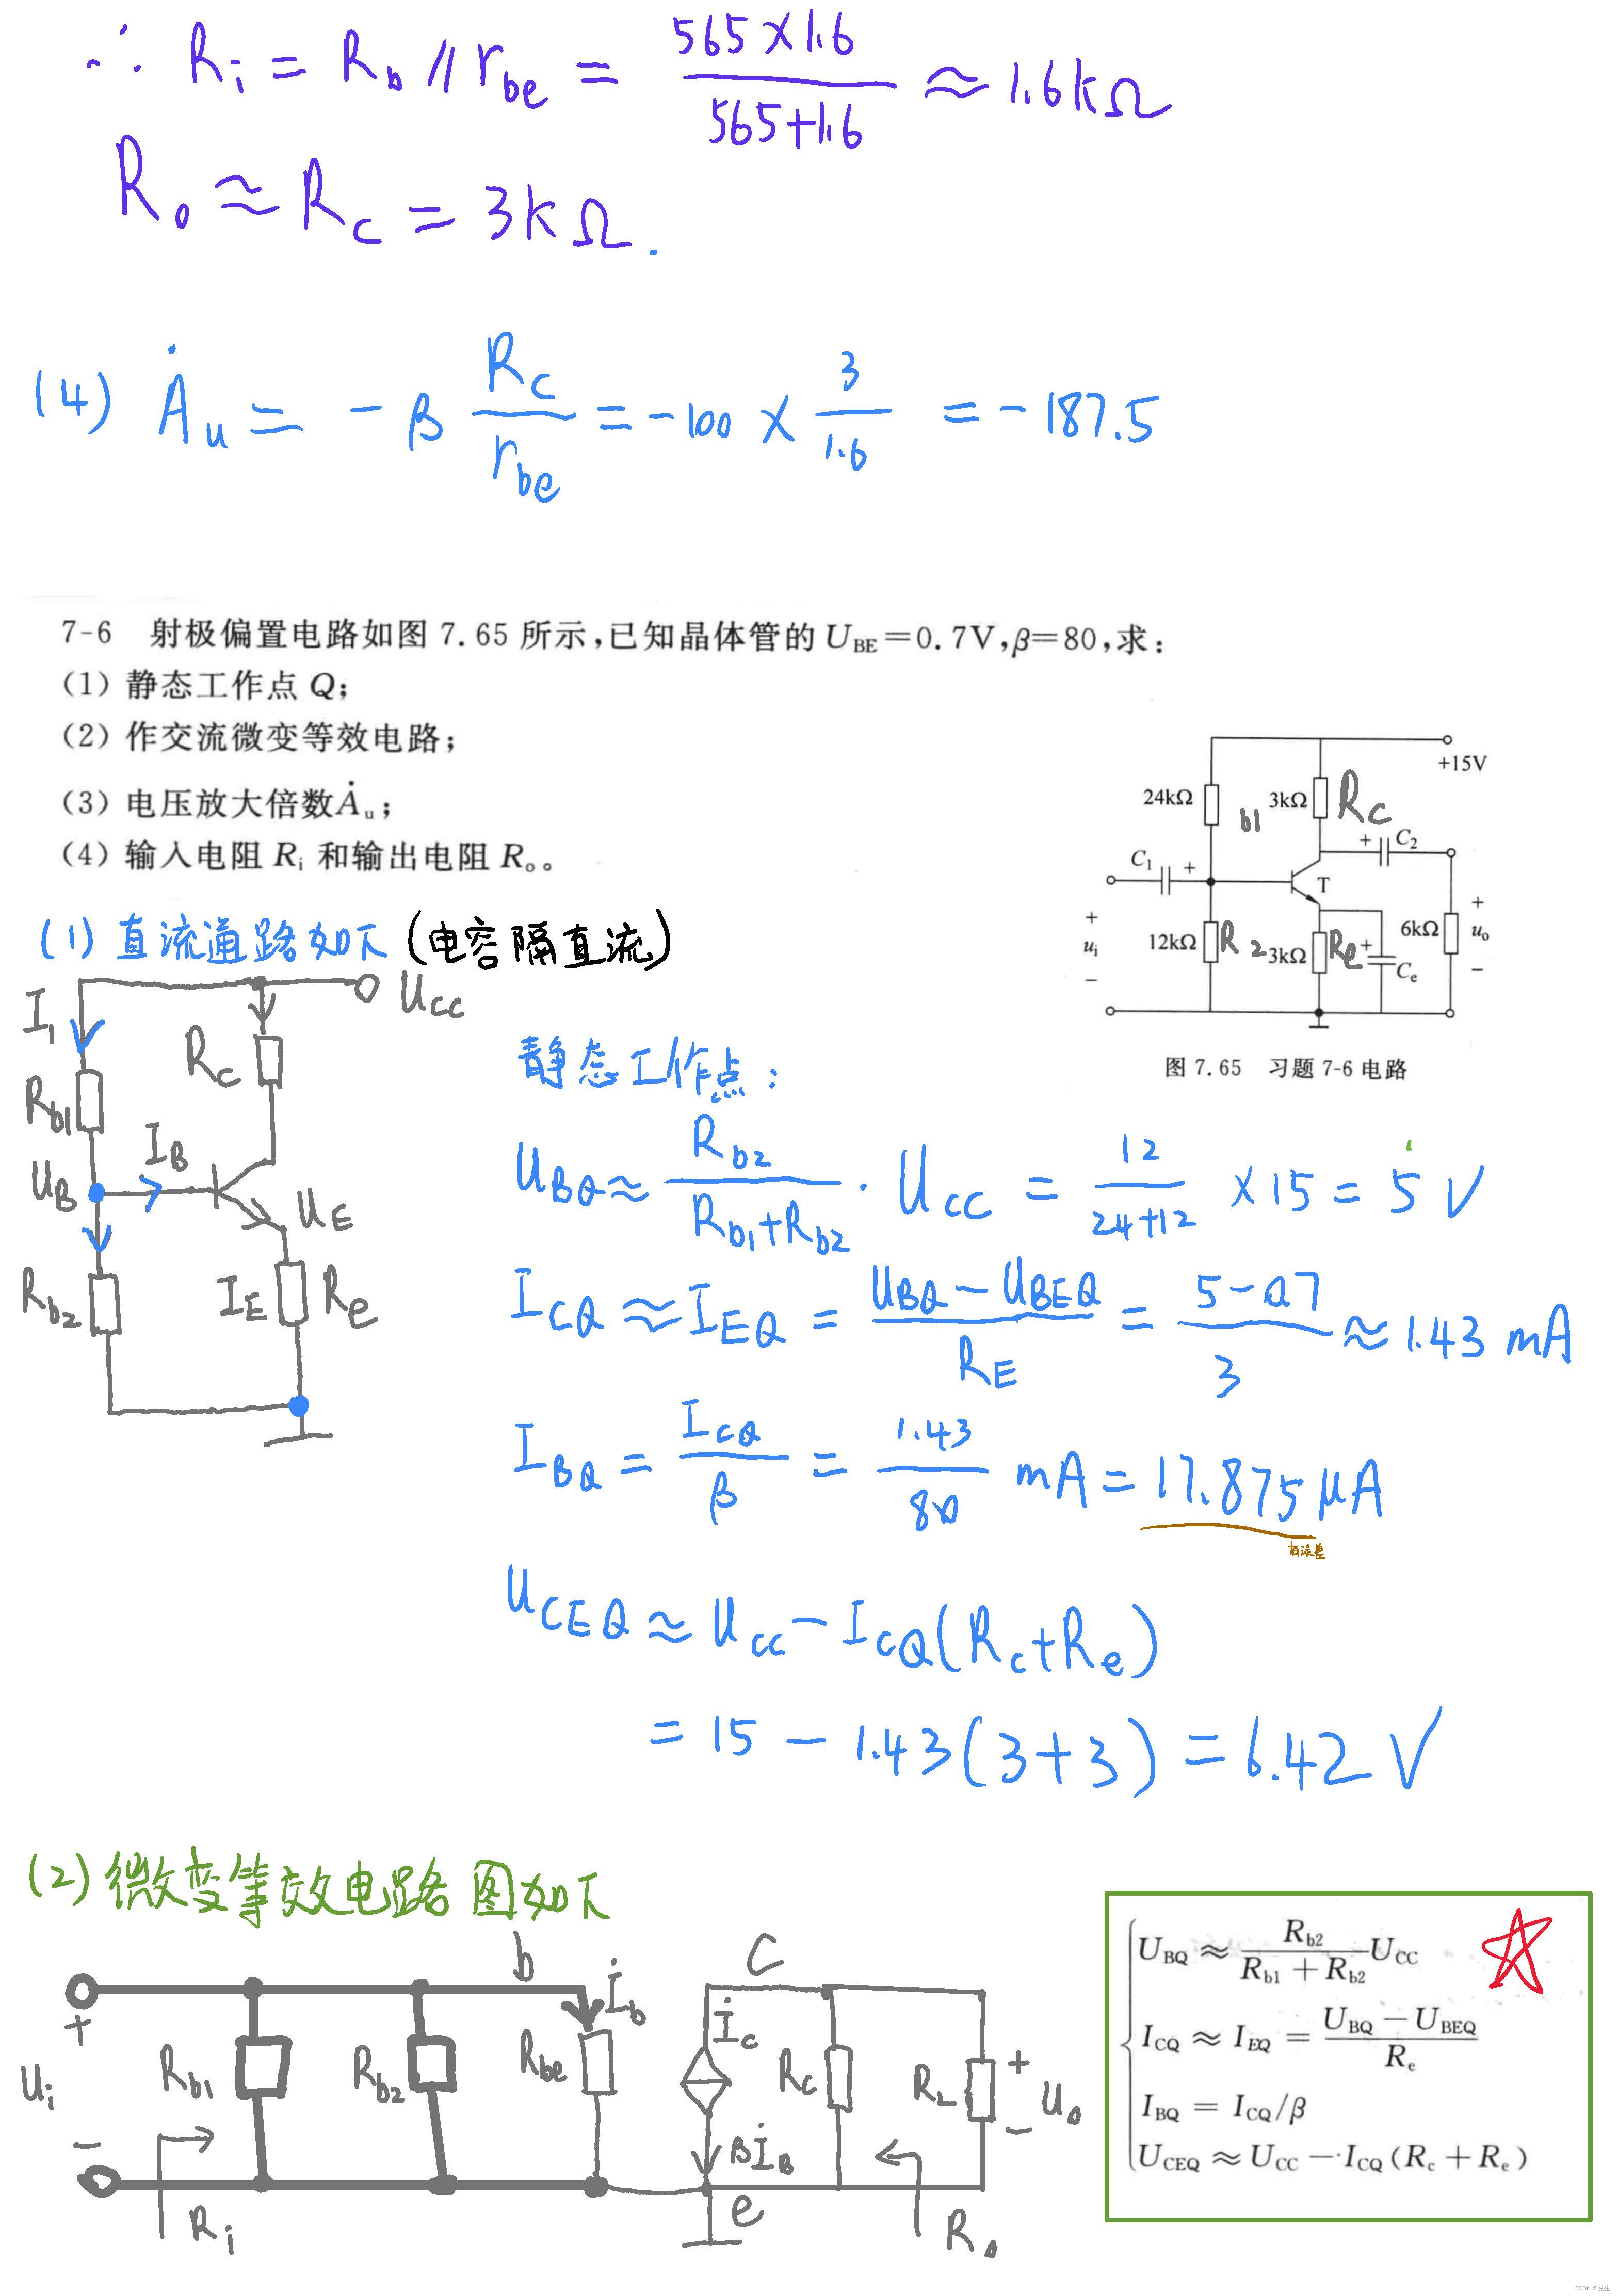 ∴ Ri = Rb // rbe = 565×1.6 / 565+1.6 ≈ 1.6kΩ
Ro ≈ Rc = 3kΩ.
(4) Ȧu = -β Rc / rbe = -100 × 3 / 1.6 = -187.5
7-6 射极偏置电路如图 7.65 所示,已知晶体管的 UBE=0.7V,β=80,求:
(1) 静态工作点 Q;
(2) 作交流微变等效电路;
(3) 电压放大倍数Ȧu;
(4) 输入电阻 Ri 和输出电阻 Ro。
+15V
24kΩ
b1
3kΩ
Rc
+
C2
C1
+
T
+
ui
-
12kΩ
R
2
3kΩ
Re
+
Ce
6kΩ
+
uo
-
图 7.65 习题 7-6 电路
(1) 直流通路如下 (电容隔直流)
I1
Ucc
Rc
Rb1
IB
UB
UE
Rb2
IE
Re
静态工作点:
UBQ ≈ Rb2 / Rb1+Rb2 · Ucc = 12 / 24+12 ×15 = 5 V
ICQ ≈ IEQ = UBQ - UBEQ / RE = 5-0.7 / 3 ≈ 1.43 mA
IBQ = ICQ / β = 1.43 / 80 mA = 17.875 μA
有误差
UCEQ ≈ Ucc - ICQ(Rc+Re)
= 15 - 1.43(3+3) = 6.42 V
(2) 微变等效电路图如下
b
İb
C
İc
+
Ui
-
Rb1
Rb2
Rbe
βİB
Rc
RL
+
Uo
-
Ri
e
Ro
UBQ ≈ Rb2 / Rb1 + Rb2 UCC
ICQ ≈ IEQ = UBQ - UBEQ / Re
IBQ = ICQ/β
UCEQ ≈ UCC - ICQ(Rc + Re)